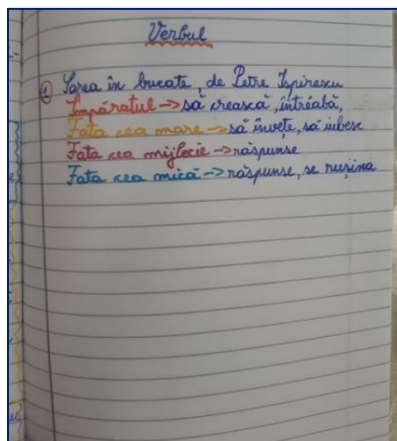 Verbul
① Sarea în bucate, de Petre Ispirescu
Împăratul -> să crească, întreabă,
Fata cea mare -> să învețe, să iubesc
Fata cea mijlocie -> răspunse
Fata cea mică -> răspunse, se rușina